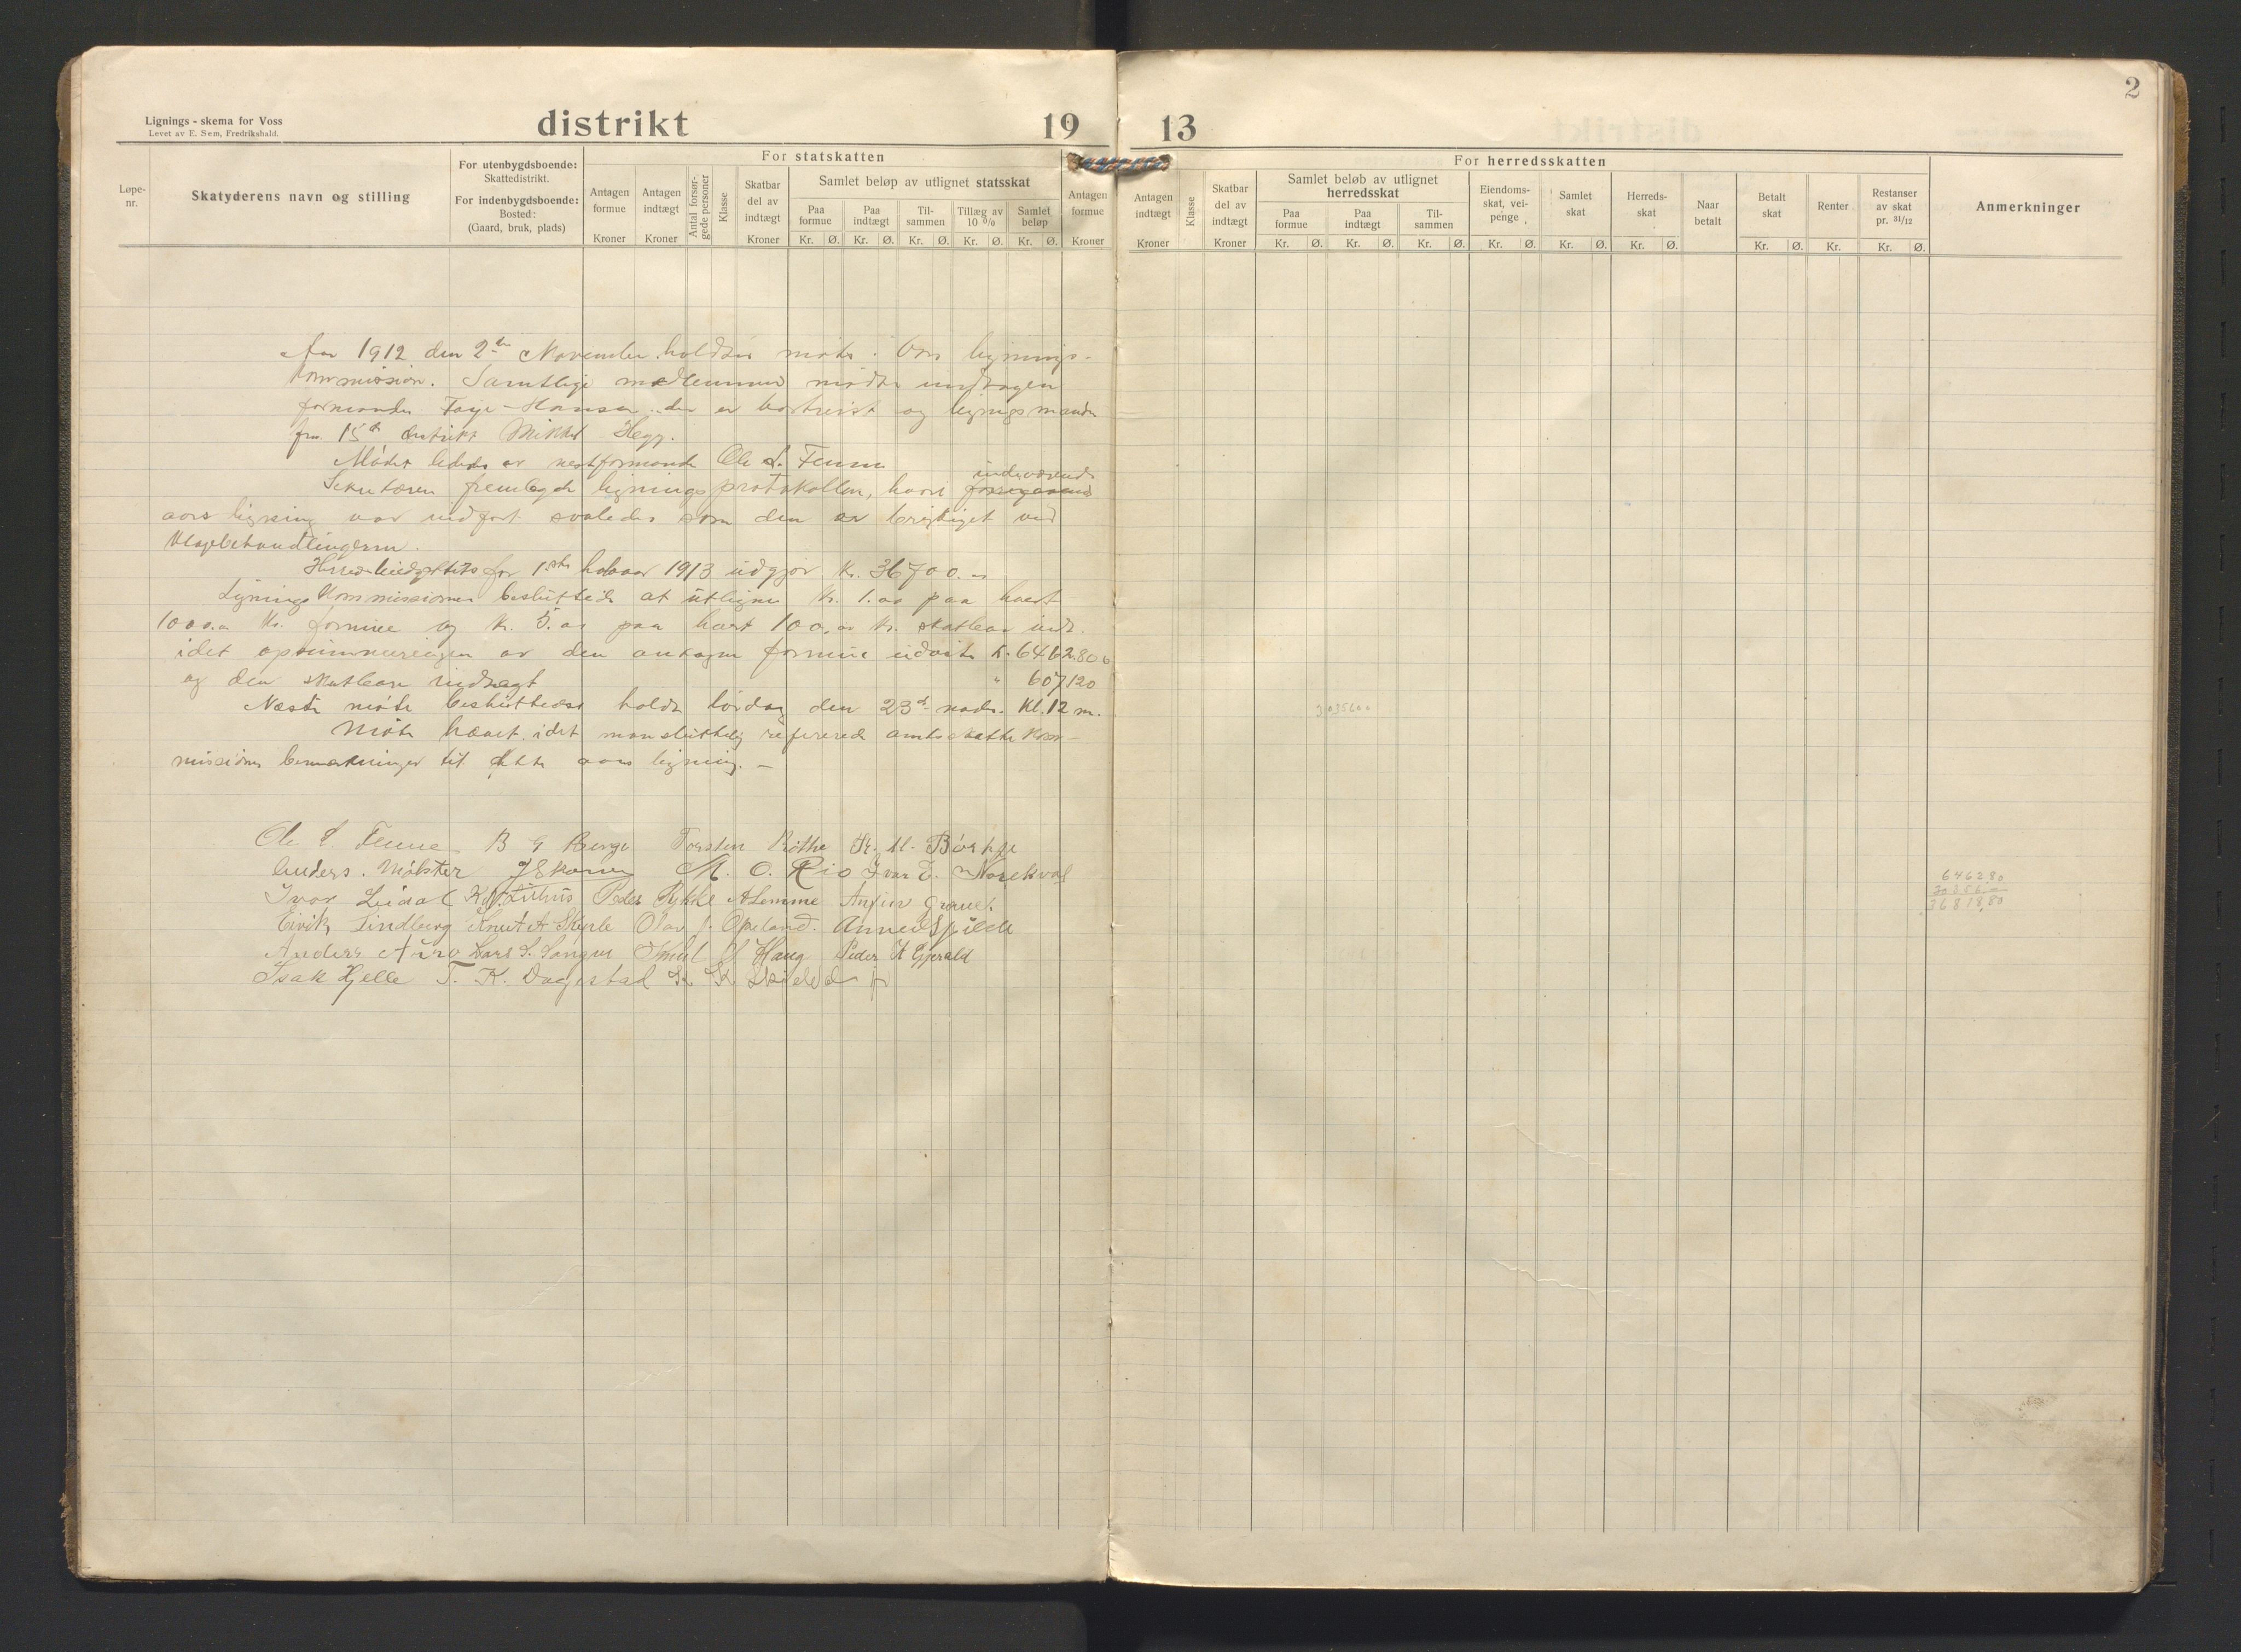 2
Lignings - skema for Voss
Levet av E. Sem, Fredrikshald.
distrikt
19 13
Løpe-
nr.
Skatyderens navn og stilling
For utenbygdsboende:
Skattedistrikt.
For indenbygdsboende:
Bosted:
(Gaard, bruk, plads)
For statskatten
Antagen
formue
Kroner
Antagen
indtægt
Kroner
Antal forsør-
gede personer
Klasse
Skatbar
del av
indtægt
Kroner
Samlet beløp av utlignet statsskat
Paa
formue
Kr. Ø.
Paa
indtægt
Kr. Ø.
Til-
sammen
Kr. Ø.
Tillæg av
10 %
Kr. Ø.
Samlet
beløp
Kr. Ø.
Antagen
formue
Kroner
For herredsskatten
Antagen
indtægt
Kroner
Klasse
Skatbar
del av
indtægt
Kroner
Samlet beløb av utlignet
herredsskat
Paa
formue
Kr. Ø.
Paa
indtægt
Kr. Ø.
Til-
sammen
Kr. Ø.
Eiendoms-
skat, vei-
penge
Kr. Ø.
Samlet
skat
Kr. Ø.
Herreds-
skat
Kr. Ø.
Naar
betalt
Betalt
skat
Kr. Ø.
Renter
Kr.
Restanser
av skat
pr. 31/12
Kr. Ø.
Anmerkninger
Aar 1912 den 2de November holdtes møte i Voss lignings-
kommission. Samtlige medlemmer mødte undtagen
formanden Faye-Hansen der er bortreist og ligningsmanden
fra 15de distrikt Mikkel Hegg.
Mødet lededes av næstformand Ole S. Fenne
indeværende
Sekretæren fremlagde ligningsprotokollen, hvori foregaaende
aars ligning var indført saaledes som den er berigtiget ved
klagebehandlingerne.
Herredsbudgettets for 1ste halvaar 1913 utgjør kr. 36700.
Ligningskommissionen besluttede at utligne kr. 1.00 paa hvert
1000.00 kr. formue og kr. 5.00 paa hvert 100.00 kr. skatbar indt.
idet opsummeringen av den antagne formue utviste k. 6462800
og den skatbare indtægt " 607120
Næste møte besluttedes holdt lørdag den 23de nov. Kl. 12 m.
Møte hævet idet man sluttelig refererede amtsskattekom-
missionens bemerkninger til dette aars ligning. –
303560
Ole S. Fenne B G Berge Torsten Rothe
Anders Mølster J Skorve M. O. Rio Ivar E. Norekval
Ivar Leidal Peder Rykke A Lemme Anfin Grove
Eirik Lindberg Knut A Skjple Olav J. Opeland. Anne Spilde
Anders Lars L. Knut J Haug Peder K Gjerald
Isak Hjelle T. K. Dagestad K K Skjelde jr
646280
3035600
36818,80